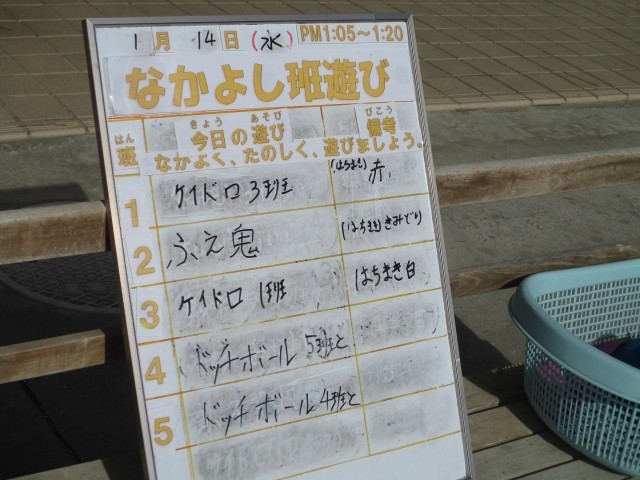 1月14日(水) PM1:05～1:20
なかよし班遊び
はん きょう あそび びこう
班 今日の遊び 備考
なかよく、たのしく、遊びましょう。
1 ケイドロ 3班 (はちまき) 赤
2 ふえ鬼 (はちまき) きみどり
3 ケイドロ 1班 はちまき 白
4 ドッチボール 5班と
5 ドッチボール 4班と